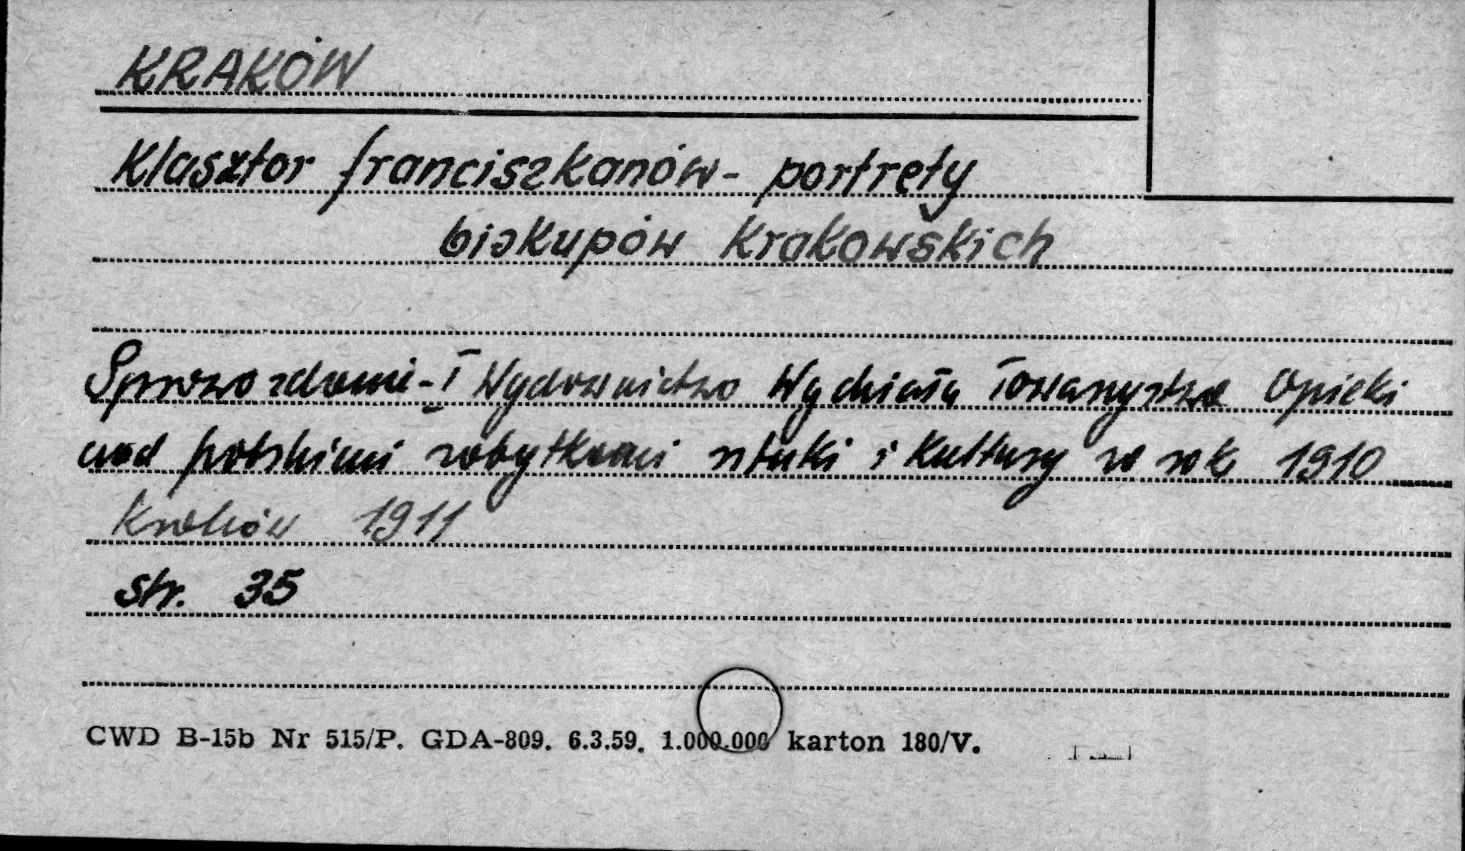 KRAKÓW
Klasztor franciszkanów - portrety
biskupów Krakowskich
Sprawozdanie - I Wydawnictwo Wydziału Towarzystwa Opieki
nad polskimi zabytkami sztuki i Kultury za rok 1910
Kraków 1911
str. 35
CWD B-15b Nr 515/P. GDA-809. 6.3.59. 1.000.000 karton 180/V.